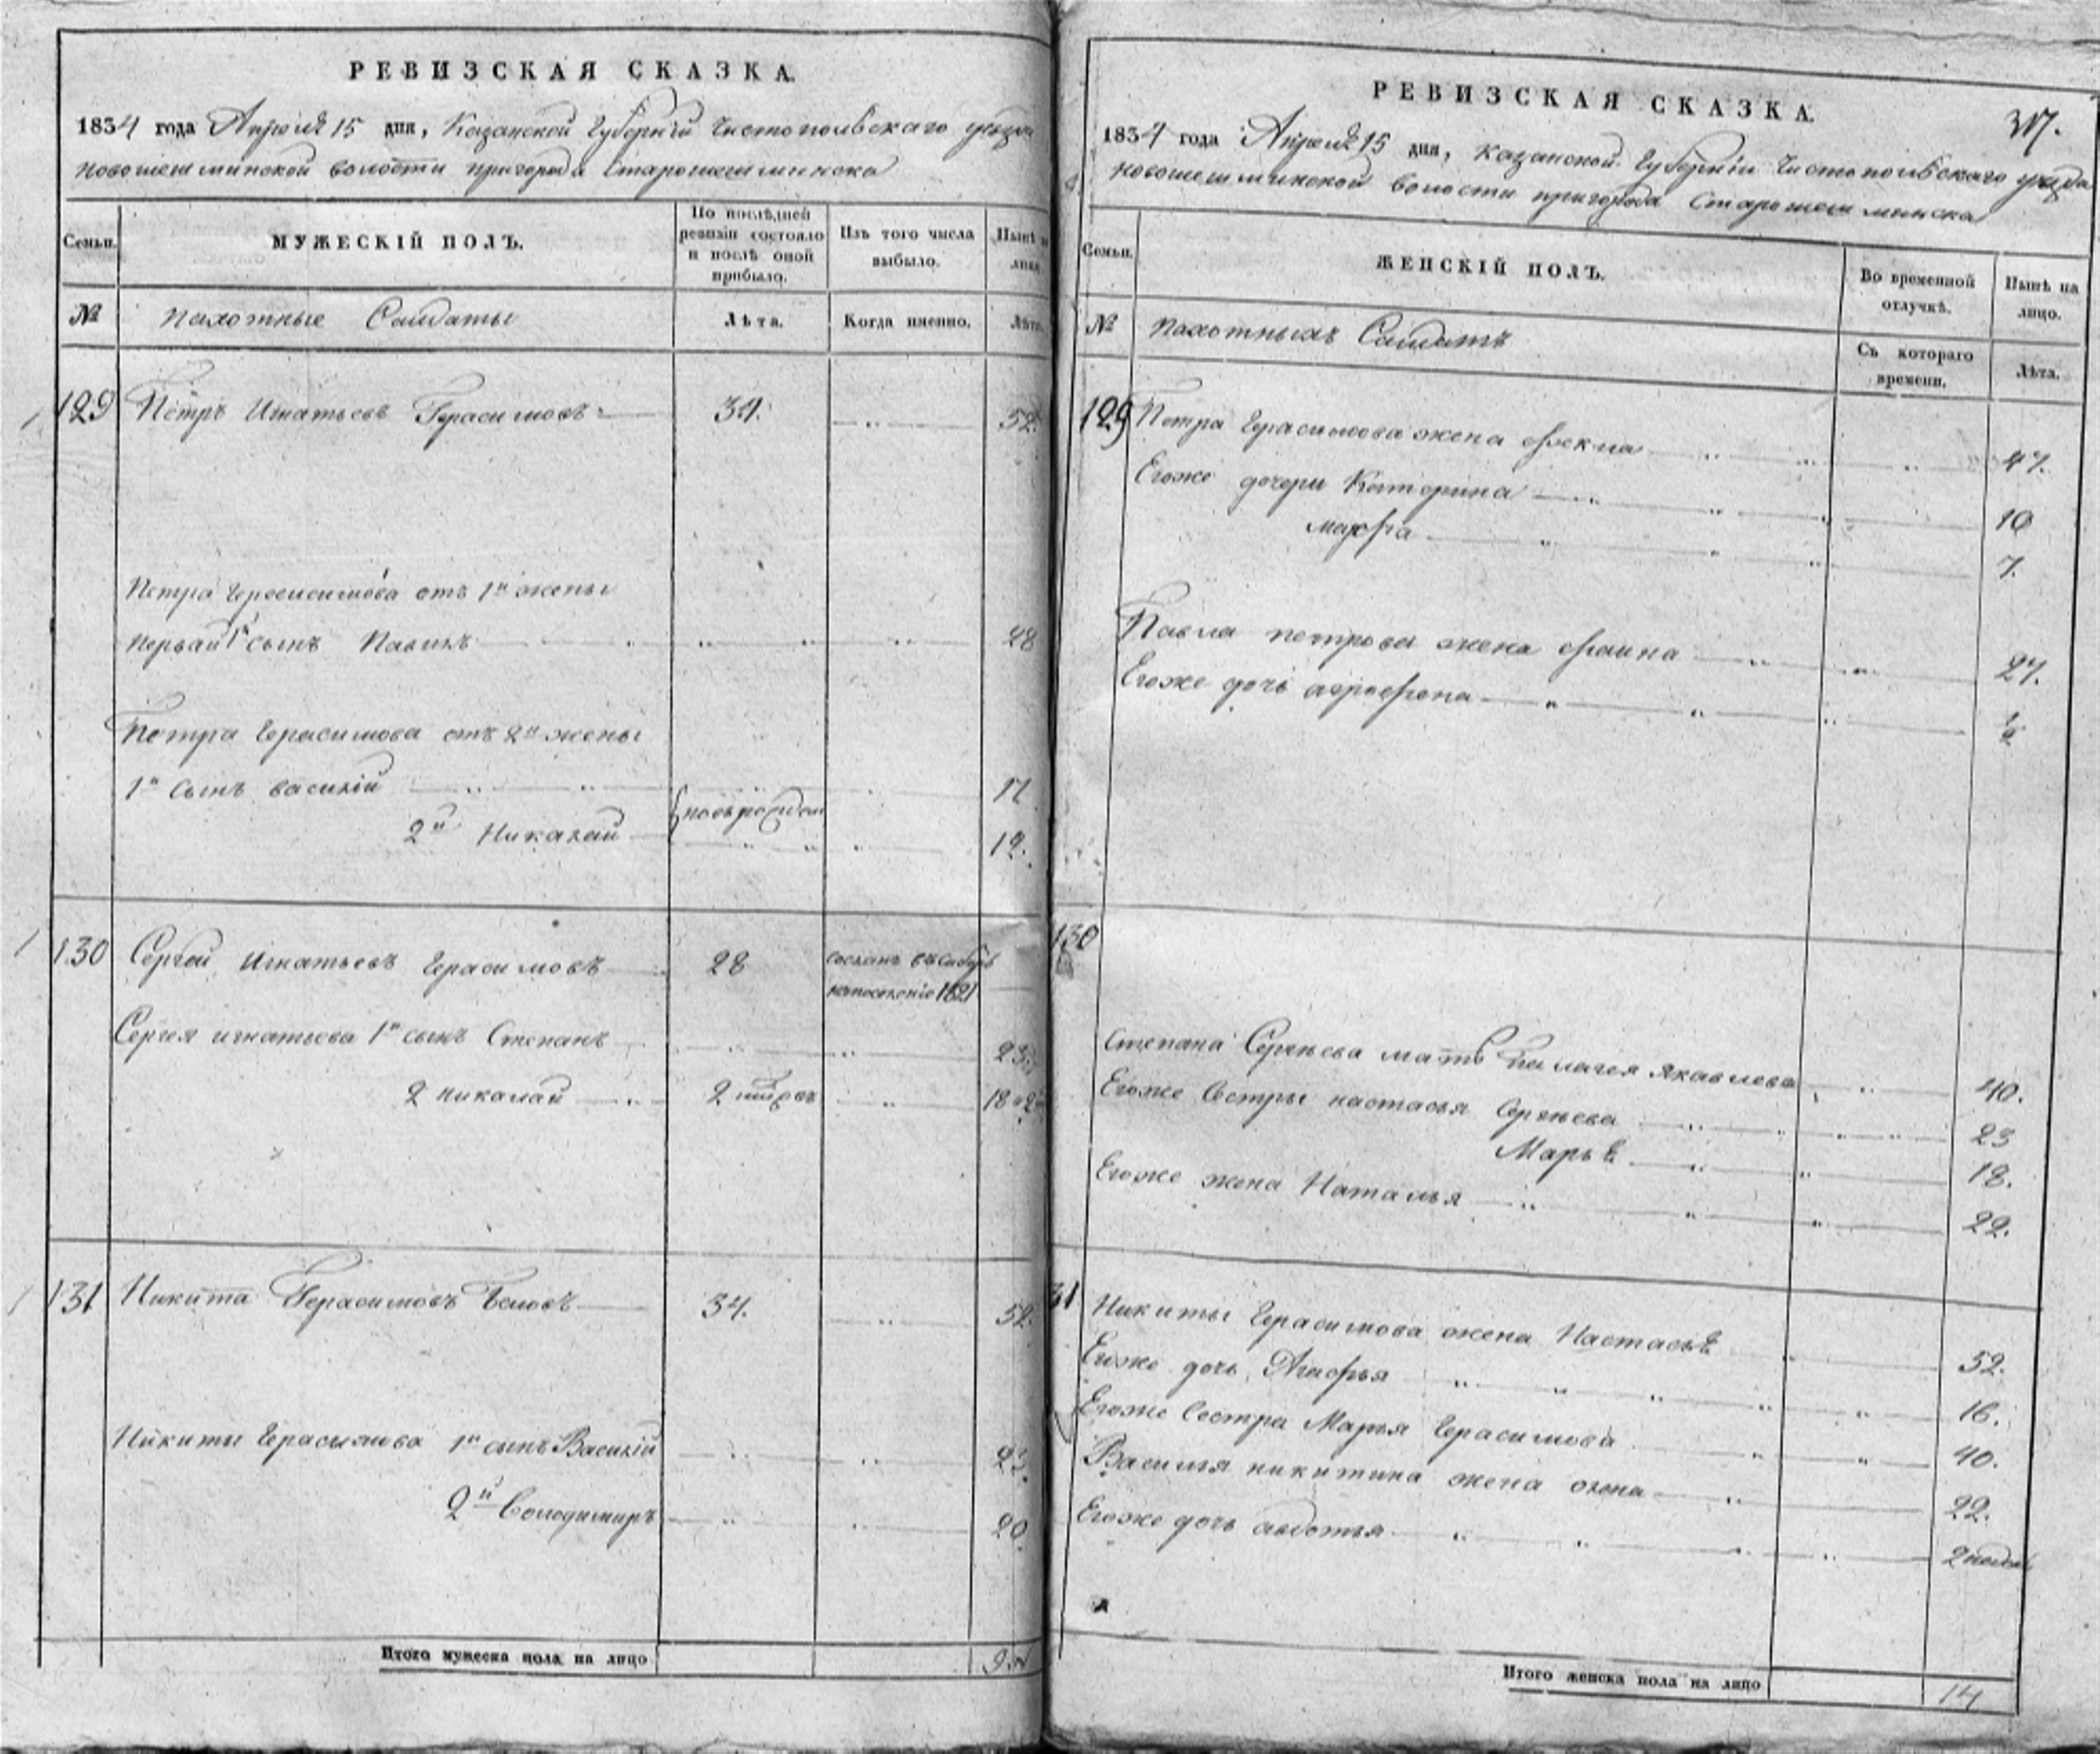 РЕВИЗСКАЯ СКАЗКА.
1834 года Апреля 15 дня, Казанской Губернiи Чистопольскаго уезда
новошешминской волости пригорода Старошешминска
Семьи.
МУЖЕСКIЙ ПОЛЪ.
По послѣдней ревизiи состояло и послѣ оной прибыло.
Изъ того числа выбыло.
Нынѣ на лицо
№
пахотные Салдаты
Лѣта.
Когда именно.
Лѣта.
129 Петръ Игнатьевъ Герасимовъ 34. 52.
Петра Герасимова отъ 1й жены
первай 1й сынъ Павилъ 28
Петра Герасимова отъ 2й жены
1й сынъ василiй 17
2й Никалай 12.
130 Сергей Игнатьевъ Герасимовъ 28 сосланъ въ Сибирь
на поселенiе 1821
Сергея игнатьева 1й сынъ Степанъ 23
2 николай 18
131 Никита Герасимовъ Беловъ 34. 52.
Никиты Герасимова 1й сынъ Василiй 23.
2й Володимиръ 20
Итого мужеска пола на лицо
РЕВИЗСКАЯ СКАЗКА.
317.
1834 года Апреля 15 дня, Казанской Губернiи Чистопольскаго уезда
новошешминской волости пригорода Старошешминска
Семьи.
ЖЕНСКIЙ ПОЛЪ.
Во временной отлучкѣ.
Нынѣ на лицо.
№
пахотныхъ Салдатъ
Съ котораго времени.
Лѣта.
129 Петра Герасимова жена фекла 47.
Егоже дочери Катерина 10
марфа 7.
Павла петрова жена фаина 27.
Егоже дочь аграфена ½
130
степана Сергеева мать Пилагея Яковлева 40.
Егоже Сестры настасья Сергеева 23
Марья 18.
Егоже жена Наталья 22.
31 Никиты Герасимова жена Настасья 52.
Егоже дочь Агафья 16.
Егоже Сестра Марья Герасимова 40.
Василья никитина жена олена 22.
Егоже дочь авдотья 2 недел
Итого женска пола на лицо 14